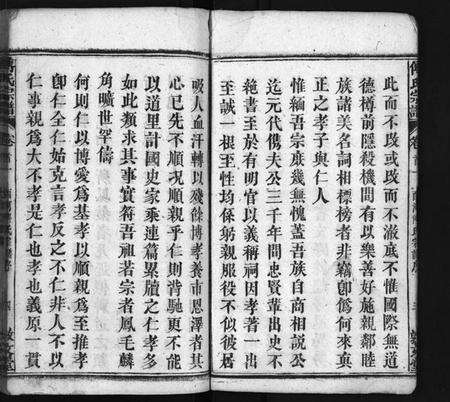 此而不改或改而不澈底不惟國際無道
德樽前隱殺機間有以樂善好施親鄰睦
族諸美名詞相標榜者非竊卽僞何來眞
正之孝子與仁人
惟緬吾宗庶幾無愧蓋吾族自商相說公
迄元代儁夫公三千年間忠賢輩出史不
絕書至於有明官以義稱祠因孝著一出
至誠 根至性均係躬親服役不似彼居
吸人血汗轉以殘餘博孝養市恩澤者其
心已先不順况順親乎仁則背馳更不能
以道里計國史家乘連篇累牘之仁孝多
如此類求其事實符吾祖若宗者鳳毛麟
角曠世罕儔
何則仁以博愛爲基孝以順親爲至推孝
卽仁全仁始克言孝反之不仁非人不以
仁事親爲大不孝是仁也孝也義原一貫